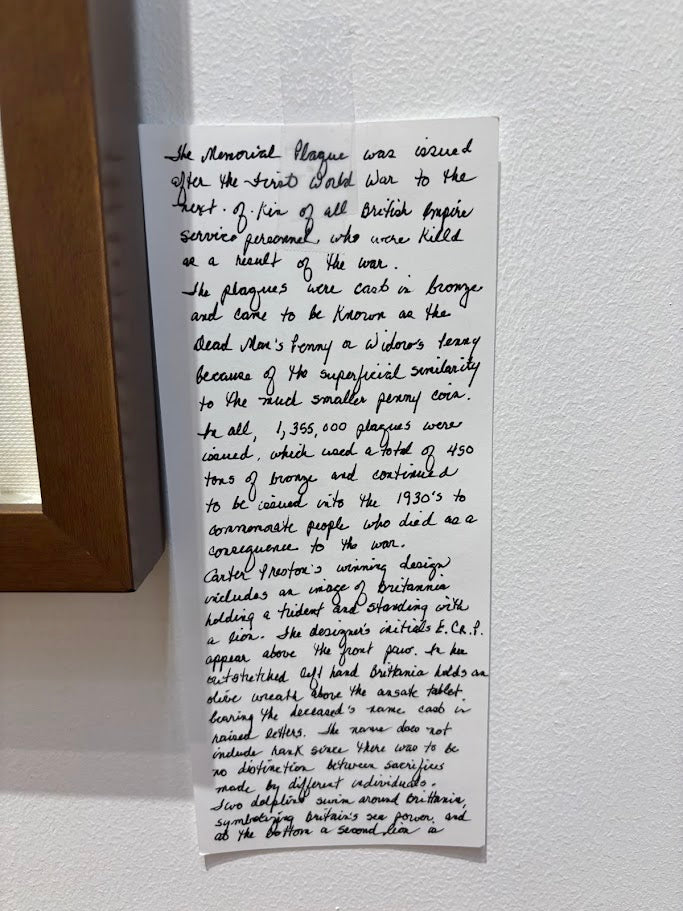 The Memorial Plaque was issued
after the First World War to the
next-of-Kin of all British Empire
service personnel, who were Killed
as a result of the war.
The plaques were cast in bronze
and came to be Known as the
Dead Man's Penny or Widow's Penny
because of the superficial similarity
to the much smaller penny coin.
In all, 1,355,000 plaques were
issued, which used a total of 450
tons of bronze and continued
to be issued into the 1930's to
commemorate people who died as a
consequence to the war.
Carter Preston's winning design
includes an image of Britannia
holding a trident and standing with
a lion. The designer's initials E.CR.P.
appear above the front paw. In her
outstretched left hand Brittania holds an
olive wreath above the ansate tablet
bearing the deceased's name cast in
raised letters. The name does not
include rank since there was to be
no distinction between sacrifices
made by different individuals.
Two dolphins swim around Brittania,
symbolizing Britain's sea power, and
at the bottom a second lion is